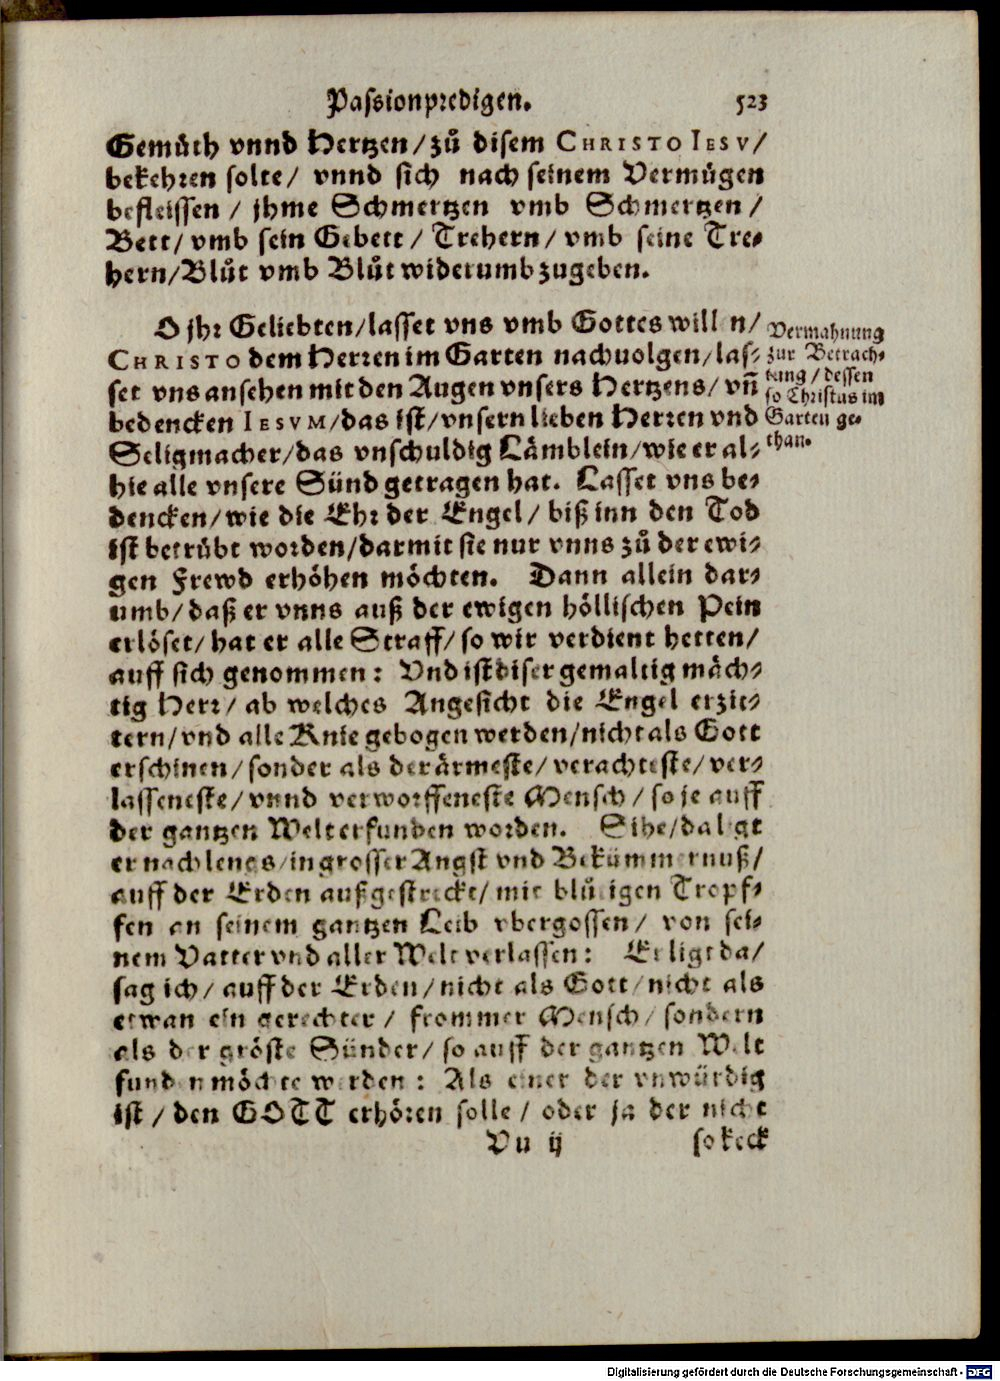 Passionpredigen. 523
Gemüth vnnd Hertzen/zů disem CHRISTO IESV/
bekehren solte/ vnnd sich nach seinem Vermügen
befleissen / jhme Schmertzen vmb Schmertzen /
Bett/ vmb sein Gebett / Trehern/ vmb seine Tre-
hern/Blůt vmb Blůt widerumb zugeben.
O jhr Geliebten/lasset vns vmb Gottes will n/
CHRISTO dem Herren im Garten nachuolgen/las-
set vns ansehen mit den Augen vnsers Hertzens/ vn̄
bedencken IESVM/das ist/vnsern lieben Herren vnd
Seligmacher/das vnschuldig Lämblein/wie er al-
hie alle vnsere Sünd getragen hat. Lasset vns be-
dencken/wie die Ehr der Engel/ biß inn den Tod
ist betrübt worden/darmit sie nur vnns zů der ewi-
gen Frewd erhöhen möchten. Dann allein dar-
umb/daß er vnns auß der ewigen höllischen Pein
erlöset/hat er alle Straff/so wir verdient hetten/
auff sich genommen: Vnd ist diser gemaltig mäch-
tig Herr/ ab welches Angesicht die Engel erzit-
tern/vnd alle Knie gebogen werden/nicht als Gott
erschinen/sonder als der ärmeste/verachteste/ver-
lasseneste/vnnd verworffeneste Mensch/so je auff
der gantzen Welt erfunden worden. Sihe/da ligt
er nach lengs/in grosser Angst vnd Bekümmernuß/
auff der Erden außgestreckt/mit blůtigen Tropf-
fen an seinem gantzen Leib vbergossen/ von sei-
nem Vatter vnd aller Welt verlassen: Er ligt da/
sag ich/ auff der Erden/nicht als Gott/nicht als
etwan ein gerechter/ frommer Mensch/ sondern
als der gröste Sünder/ so auff der gantzen Welt
funden möchte werden: Als einer der vnwürdig
ist/ den GOTT erhören solle/ oder ja der nicht
Vu ij so keck
Vermahnung
zur Betrach-
tung/dessen
so Christus im
Garten ge-
than.
Digitalisierung gefördert durch die Deutsche Forschungsgemeinschaft - DFG